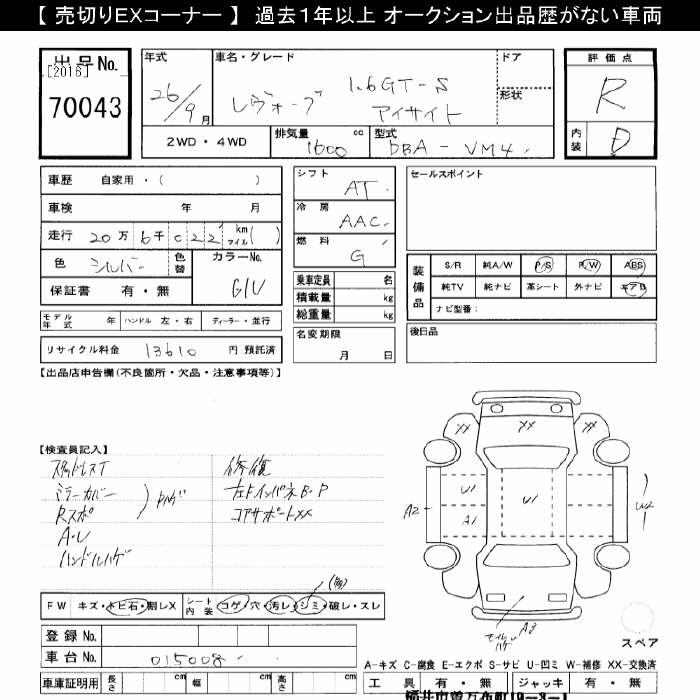 【 売切りEXコーナー 】 過去1年以上 オークション出品歴がない車両
出品No.
[2016]
70043
年式
26/9月
車名・グレード
レヴォーグ 1.6GT-S
アイサイト
ドア
形状
2WD ・ 4WD
排気量 1600 cc
型式 DBA - VM4
評価点
R
内装 D
車歴 自家用 ・ ( )
車検 年 月
走行 20万 6千 022 km マイル ( )
色 シルバー 色替
カラーNo.
G1U
保証書 有 ・ 無
モデル年式 年 ハンドル 左 ・ 右 ディーラー ・ 並行
リサイクル料金 13610 円 預託済
シフト AT
冷房 AAC
燃料 G
乗車定員 名
積載量 kg
総重量 kg
名変期限
月 日
セールスポイント
装備品
S/R 純A/W P/S P/W ABS
純TV 純ナビ 革シート 外ナビ エアB
ナビ型番:
後日品
【出品店申告欄(不良箇所・欠品・注意事項等)】
【検査員記入】
スタッドレスT
ミラーカバー
Rスポ
A・U
ハンドルハゲ
修復
左ドインパネB・P
コアサポートXX
FW キズ・トビ石・割レX
シート内装 コゲ・穴・汚レ・シミ・破レ・スレ
登録No.
車台No. 015008
車庫証明用 長さ cm 幅 cm 高さ cm
XX
XX
XX
A2
U1
A1
U1
U2
A3
スペア
A-キズ C-腐食 E-エクボ S-サビ U-凹ミ W-補修 XX-交換済
工具 有 ・ 無 ジャッキ 有 ・ 無